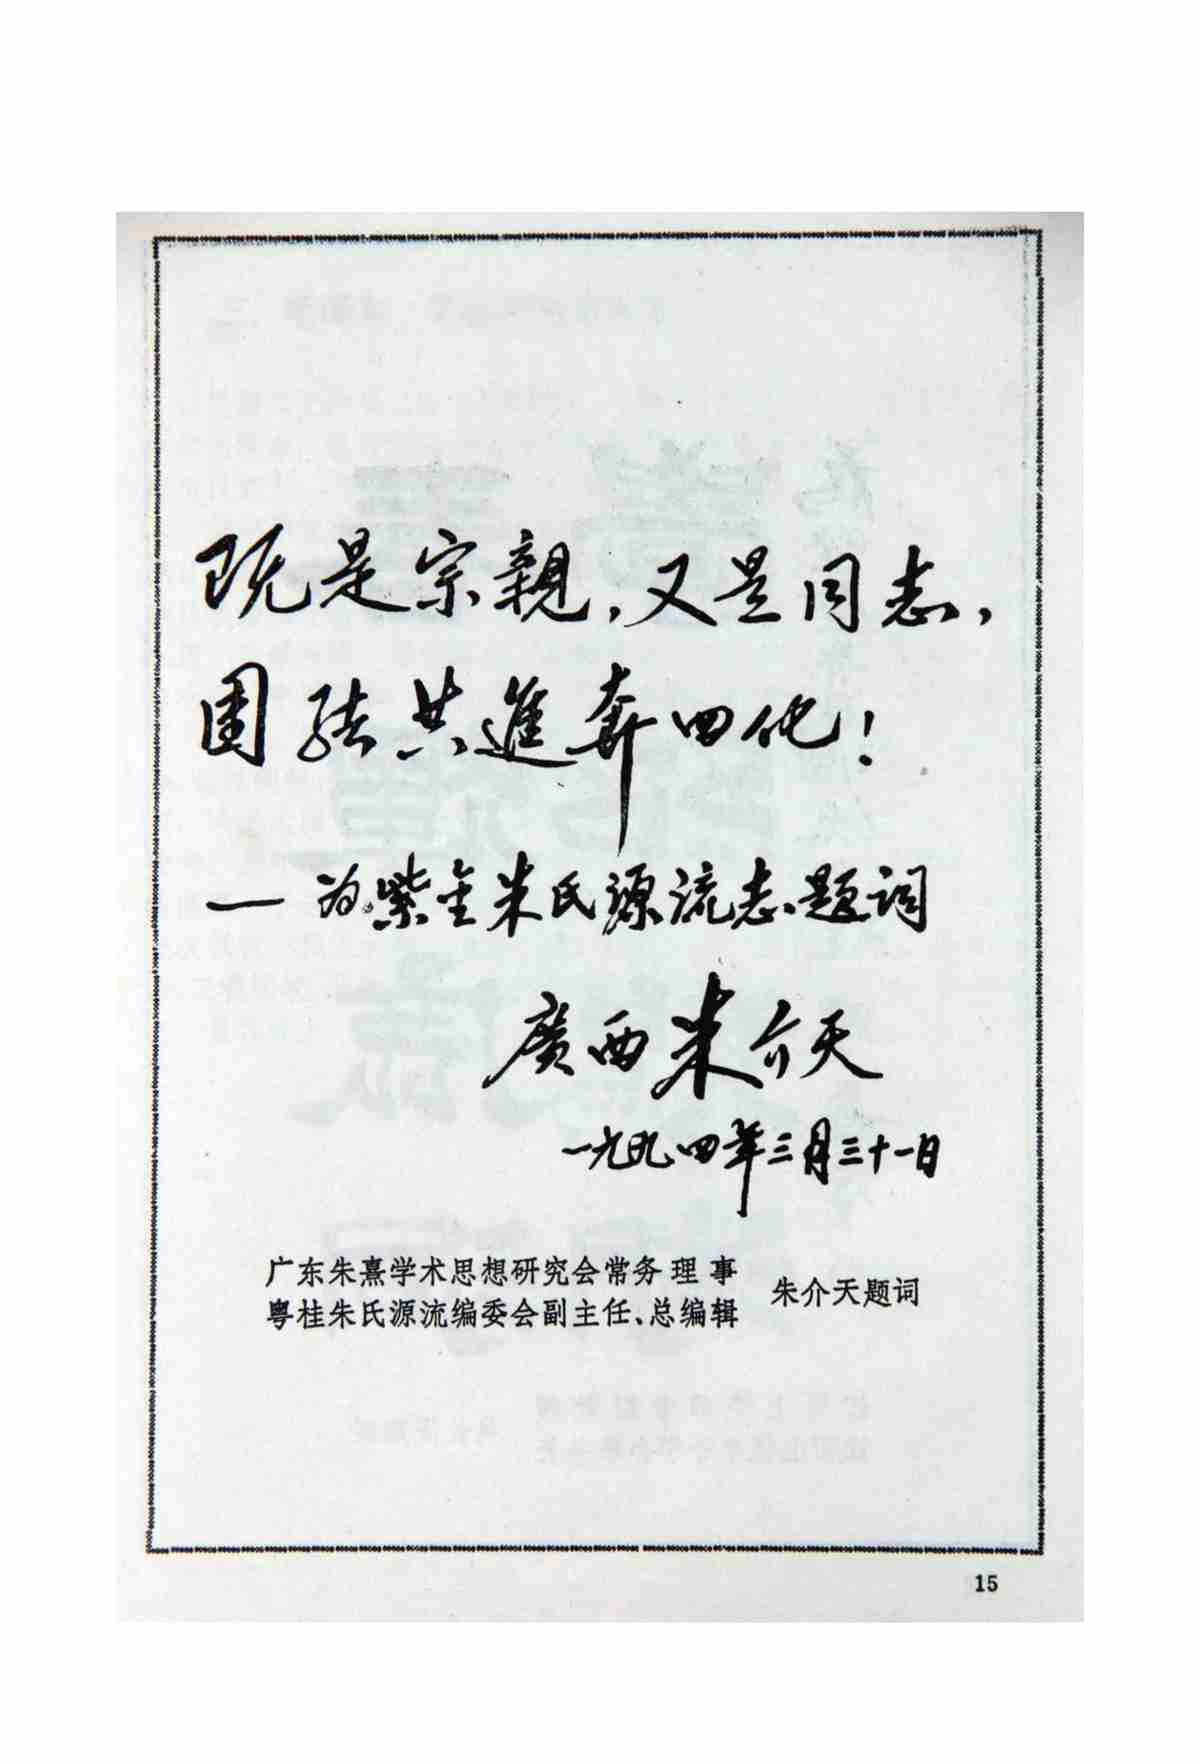 既是宗親，又是同志，
团结共進奔四化！
— 为紫金朱氏源流志题词
廣西朱介天
一九九四年三月三十一日
广东朱熹学术思想研究会常务理事
粤桂朱氏源流编委会副主任、总编辑
朱介天题词
15